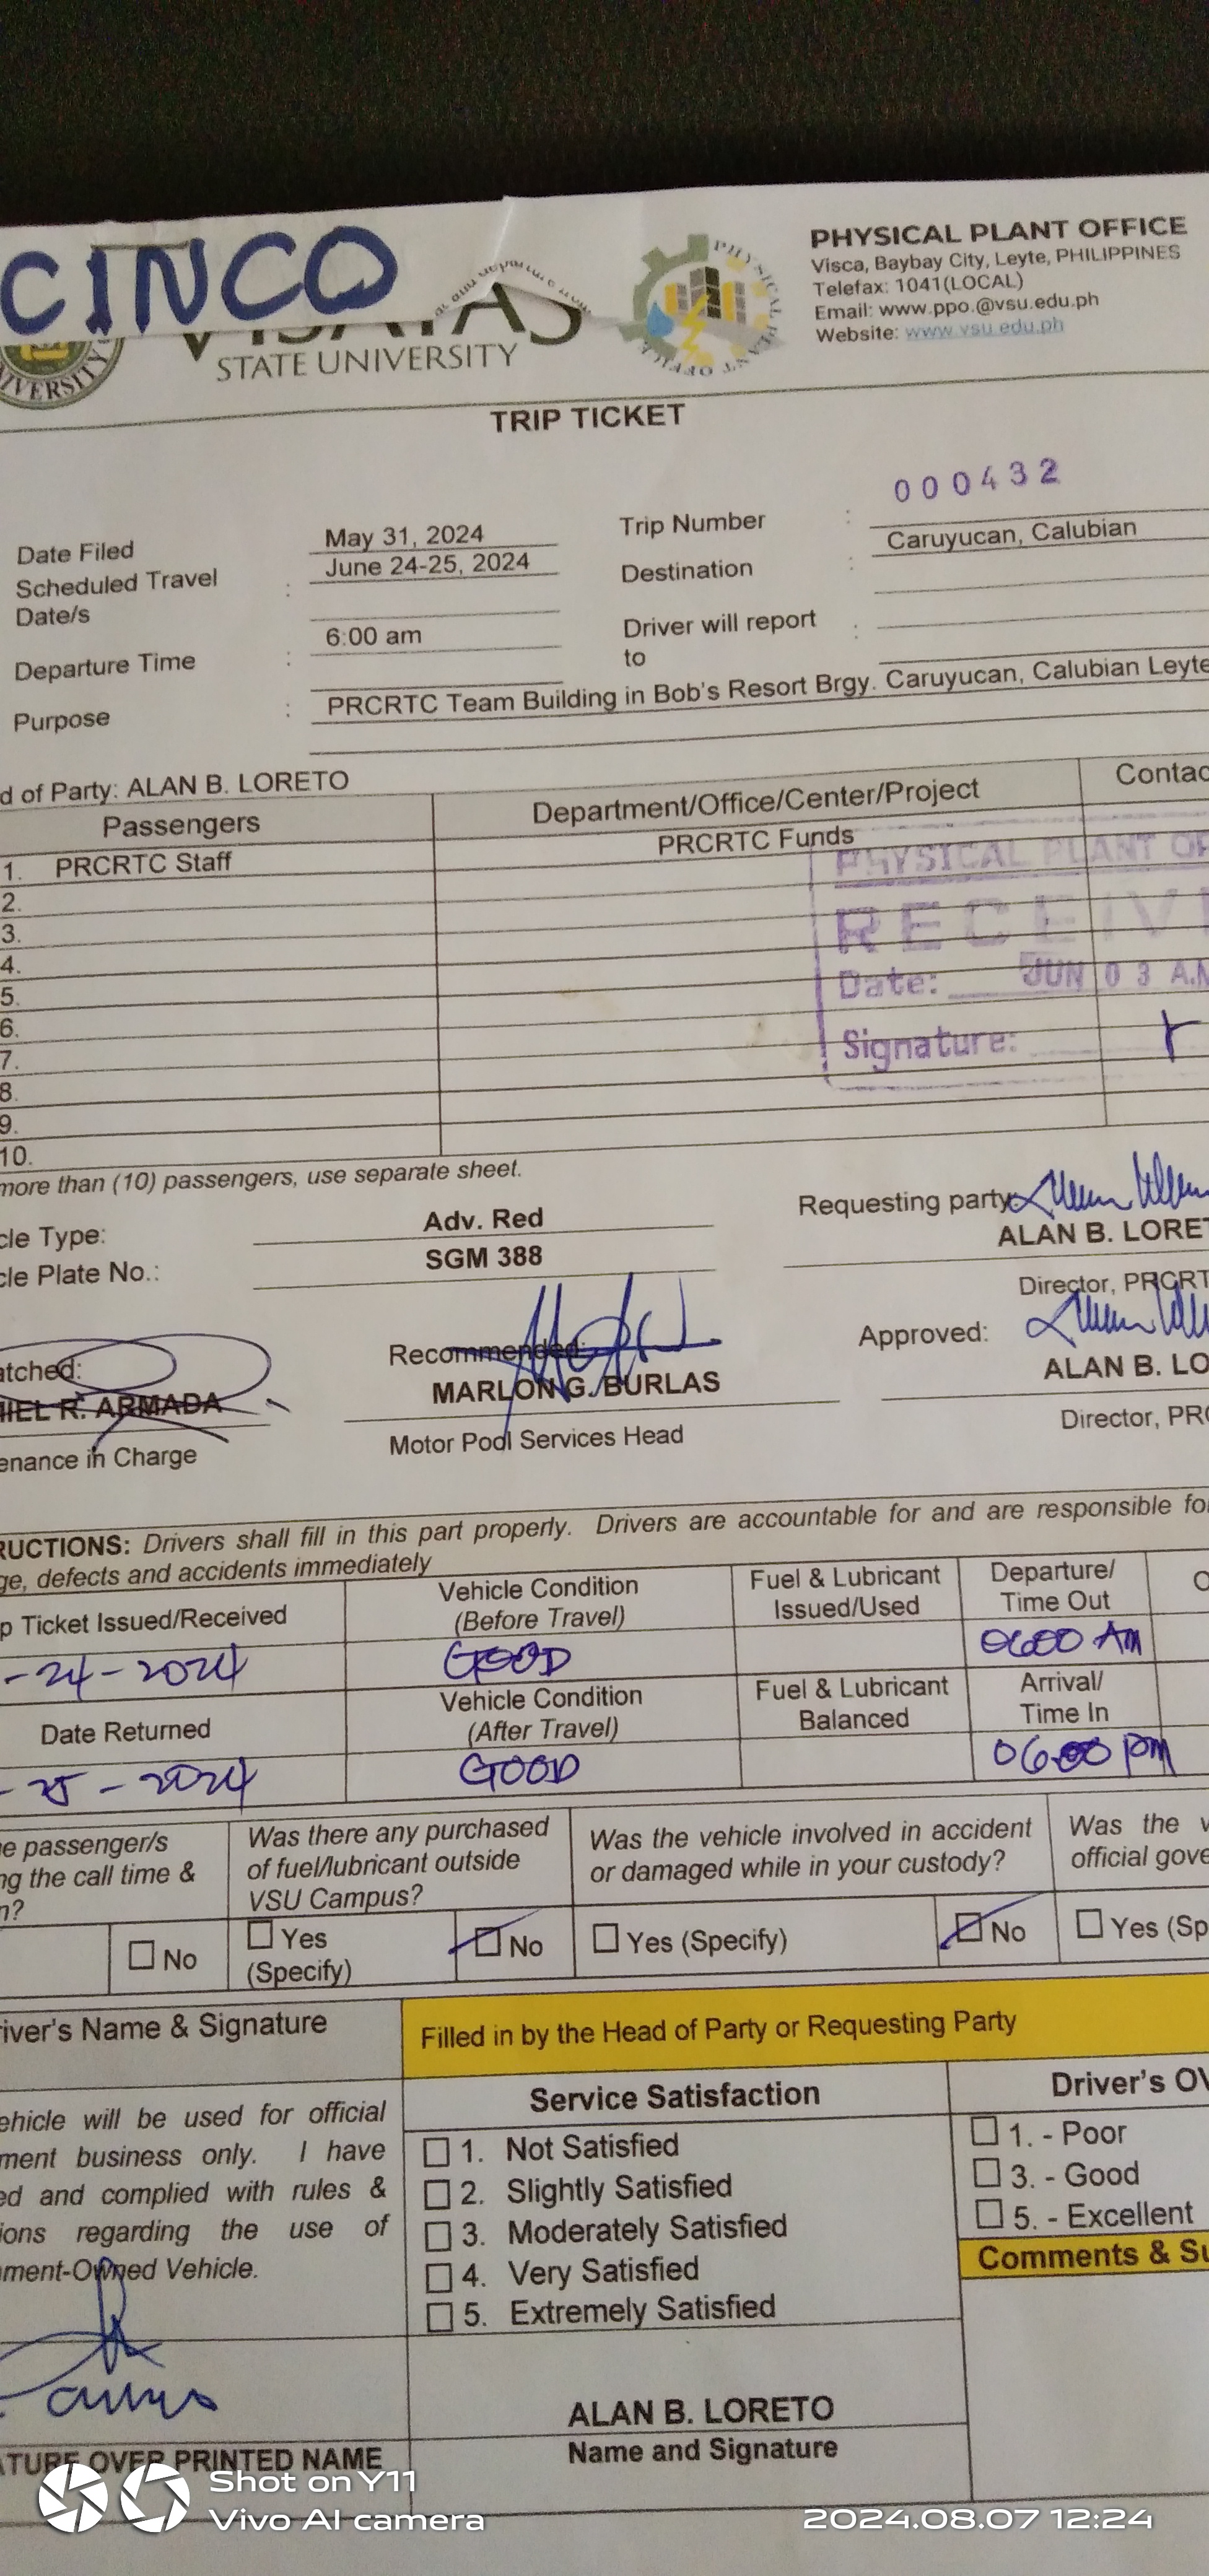 CINCO
STATE UNIVERSITY
VERSITY
PHYSICAL PLANT OFFICE
Visca, Baybay City, Leyte, PHILIPPINES
Telefax: 1041(LOCAL)
Email: www.ppo.@vsu.edu.ph
Website: www.vsu.edu.ph
TRIP TICKET
000432
Date Filed May 31, 2024 Trip Number :
Scheduled Travel Date/s : June 24-25, 2024 Destination : Caruyucan, Calubian
Departure Time : 6:00 am Driver will report to :
Purpose : PRCRTC Team Building in Bob's Resort Brgy. Caruyucan, Calubian Leyte
d of Party: ALAN B. LORETO
Passengers Department/Office/Center/Project Contac
1. PRCRTC Staff PRCRTC Funds
2.
3.
4.
5.
6.
7.
8.
9.
10.
PHYSICAL PLANT OF
RECEIV
Date: JUN 03 A.M
Signature:
more than (10) passengers, use separate sheet.
cle Type: Adv. Red
cle Plate No.: SGM 388
Requesting party:
ALAN B. LORET
Director, PRCRT
atched:
IEL R. ARMADA
enance in Charge
Recommended:
MARLON G. BURLAS
Motor Pool Services Head
Approved:
ALAN B. LO
Director, PRC
RUCTIONS: Drivers shall fill in this part properly. Drivers are accountable for and are responsible fo
ge, defects and accidents immediately
p Ticket Issued/Received Vehicle Condition (Before Travel) Fuel & Lubricant Issued/Used Departure/ Time Out
-24-2024 GOOD 06:00 AM
Date Returned Vehicle Condition (After Travel) Fuel & Lubricant Balanced Arrival/ Time In
-25-2024 GOOD 06:00 PM
e passenger/s
ng the call time &
n?
No
Was there any purchased
of fuel/lubricant outside
VSU Campus?
Yes (Specify) No
Was the vehicle involved in accident
or damaged while in your custody?
Yes (Specify) No
Was the v
official gove
Yes (Sp
river's Name & Signature
Filled in by the Head of Party or Requesting Party
ehicle will be used for official
ment business only. I have
ed and complied with rules &
ions regarding the use of
ment-Owned Vehicle.
Service Satisfaction
1. Not Satisfied
2. Slightly Satisfied
3. Moderately Satisfied
4. Very Satisfied
5. Extremely Satisfied
Driver's OV
1. - Poor
3. - Good
5. - Excellent
Comments & Su
ALAN B. LORETO
Name and Signature
ATURE OVER PRINTED NAME
Shot on Y11
Vivo AI camera
2024.08.07 12:24